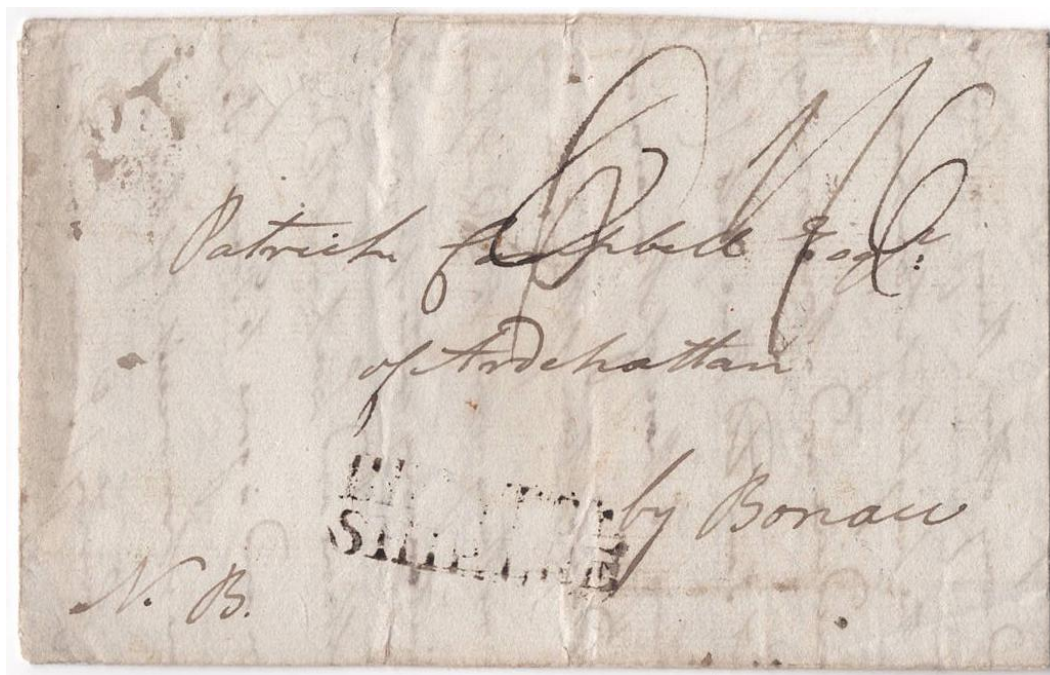 Patrick Campbell Esqr.
of Ardchattan
by Bonaw
N. B.